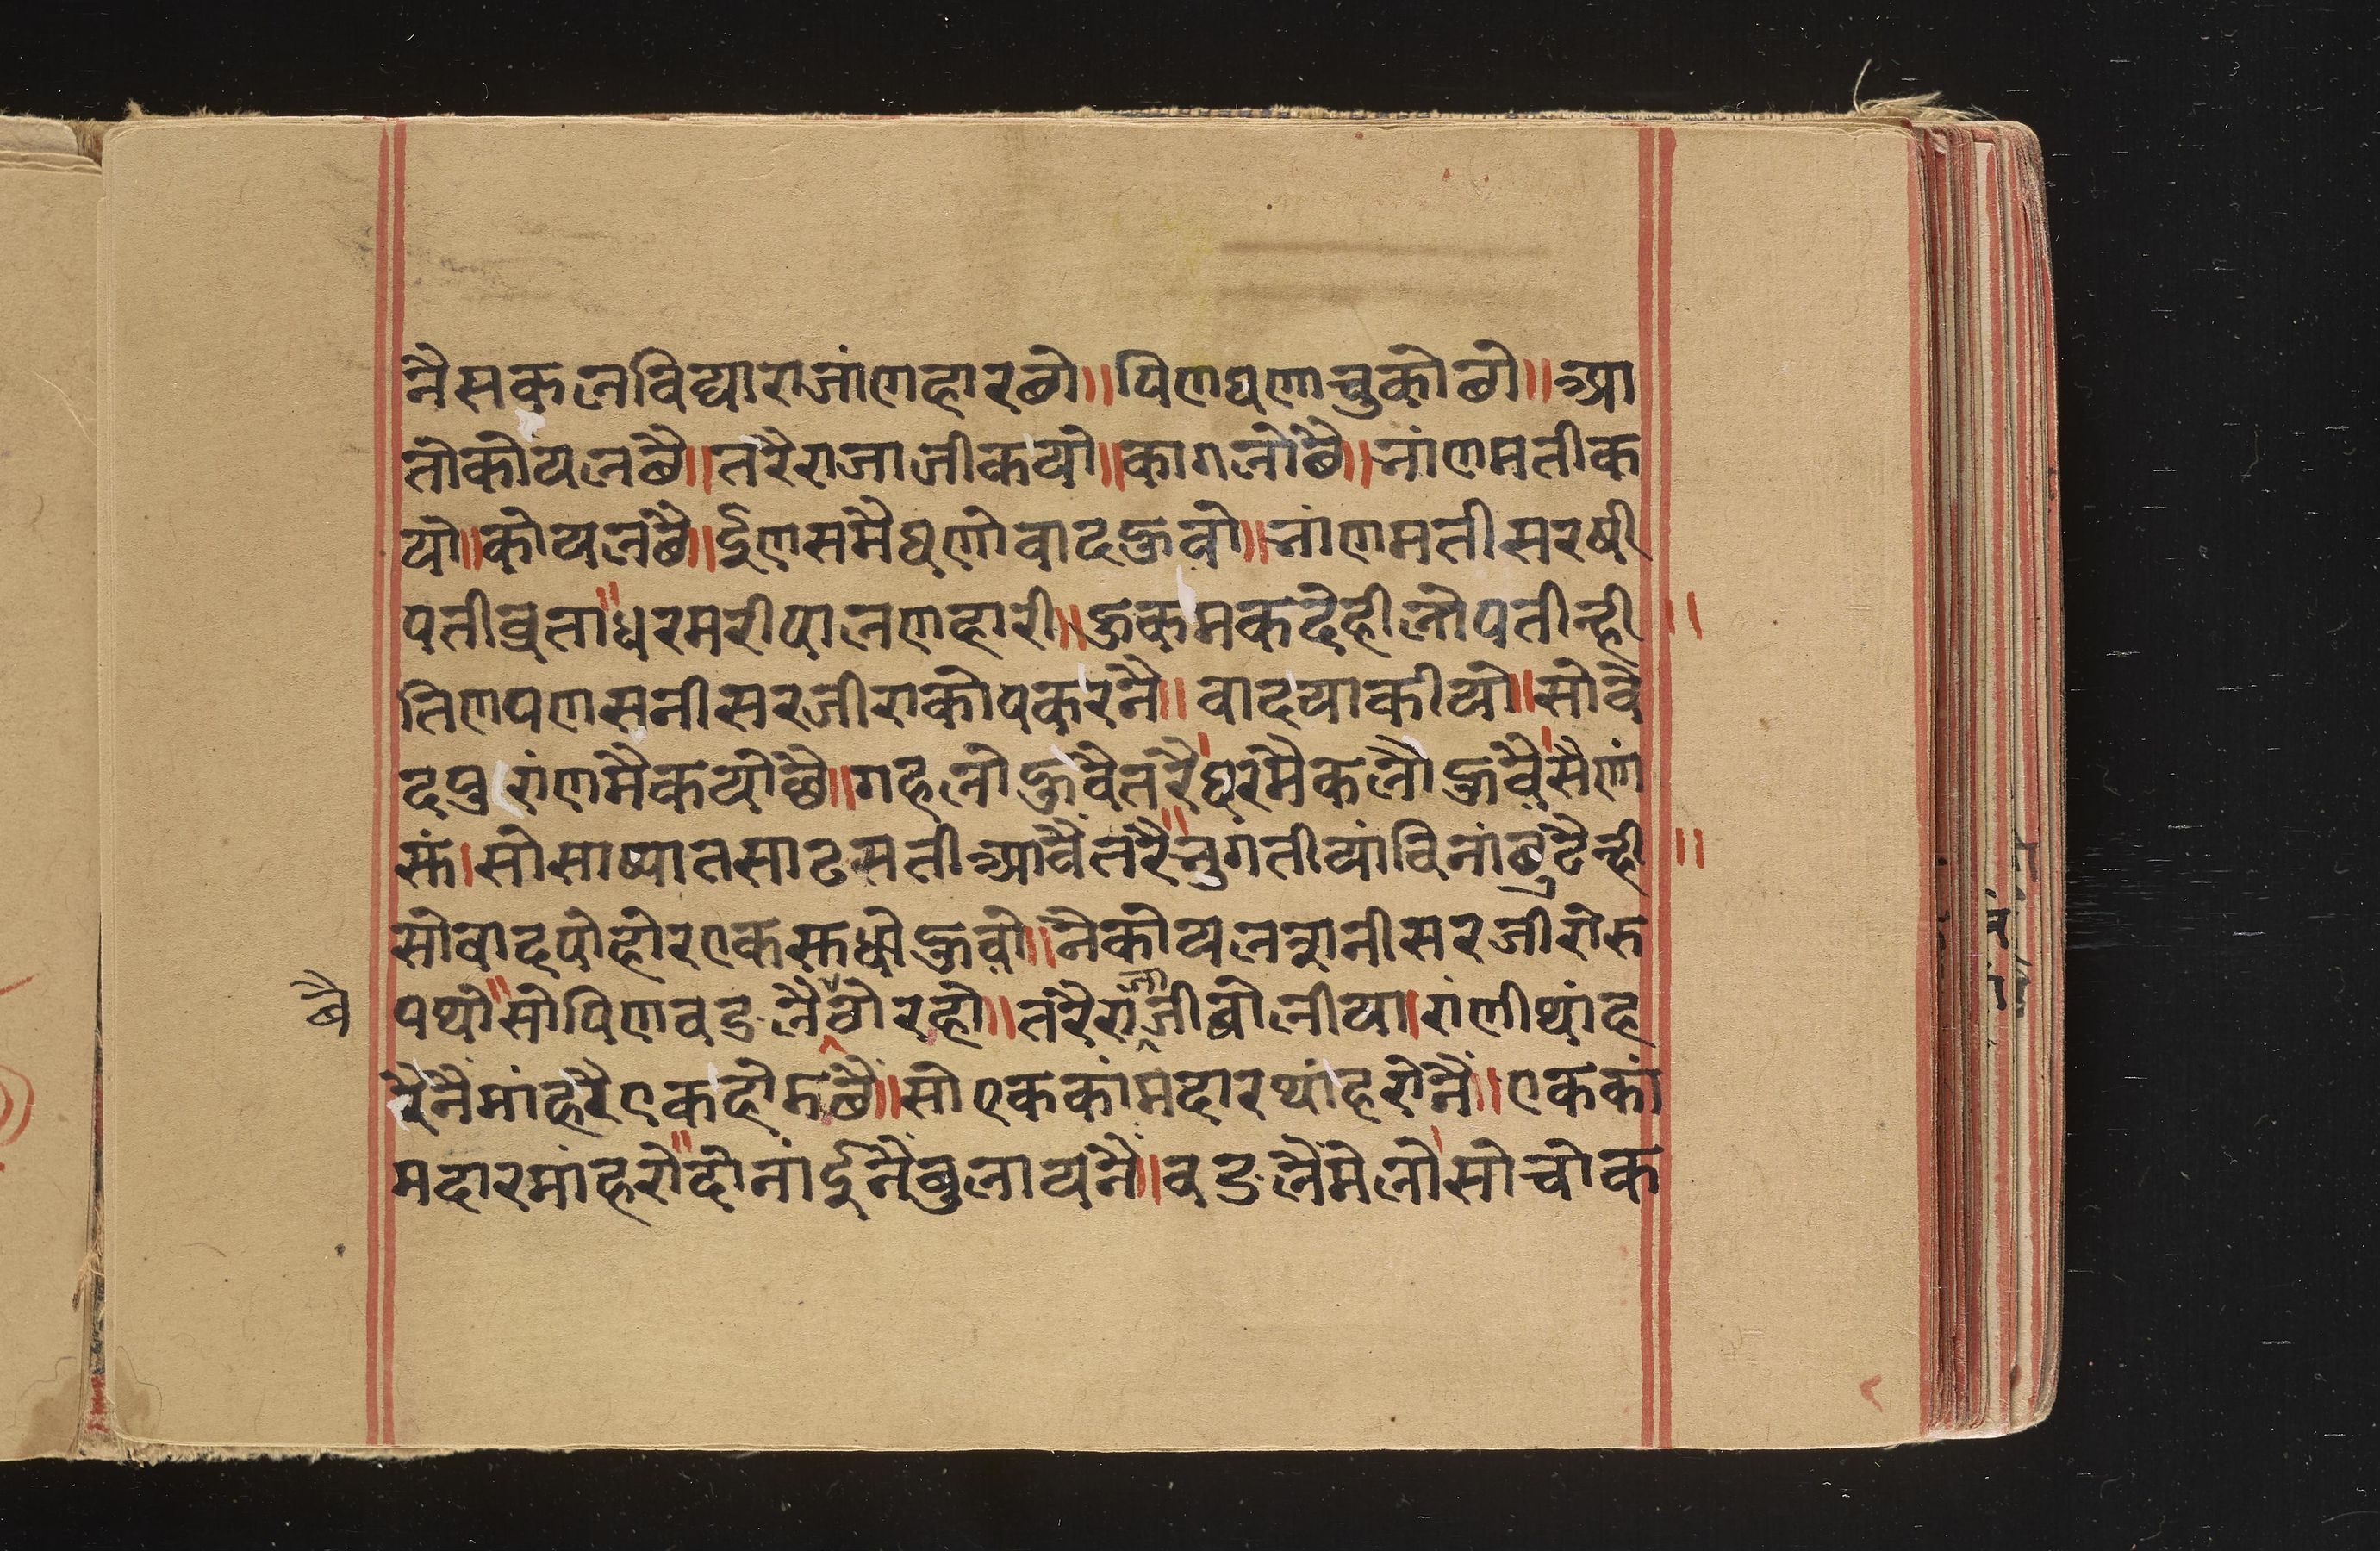 नैसकलविद्याराजांणहारछो॥पिणघणाचुकोछो॥आ
तोकोयलछै॥तरैराजाजीकयो॥कागलोछै॥नांगमतीक
यो॥कोयलछै॥ईणसमैघणोवादहुवो॥नांगमतीसरषी
पतीव्रताधरमरीपालणहारी॥हुकमकदेहीलोपतीन्ही॥
तिणपणसनीसरजीराकोपकरनै॥वादयाकीयो॥सोवे
दपुरांणमैकयोछै॥गहलोहुवैतरैघरमैकलौहुवै।सैणां
सुं।सोसाष्यातसाढसतीआवैतरै॥भुगतीयांविनांछुटैन्ही॥
सोवादपोहोरएकसुधोहुवो॥नैकोयलत्रानीसरजीरोरु
पथो॥सोपिणवडलैबैठोरहो॥तरैराजाजीबोलीया।रांणीथांह
रैनैमांहरैएकहोडछै॥सोएककांमदारथांहरोनै॥एककां
मदारमांहरो॥दोनांईनैबुलायनै॥वडलैमेलो।सोचोक